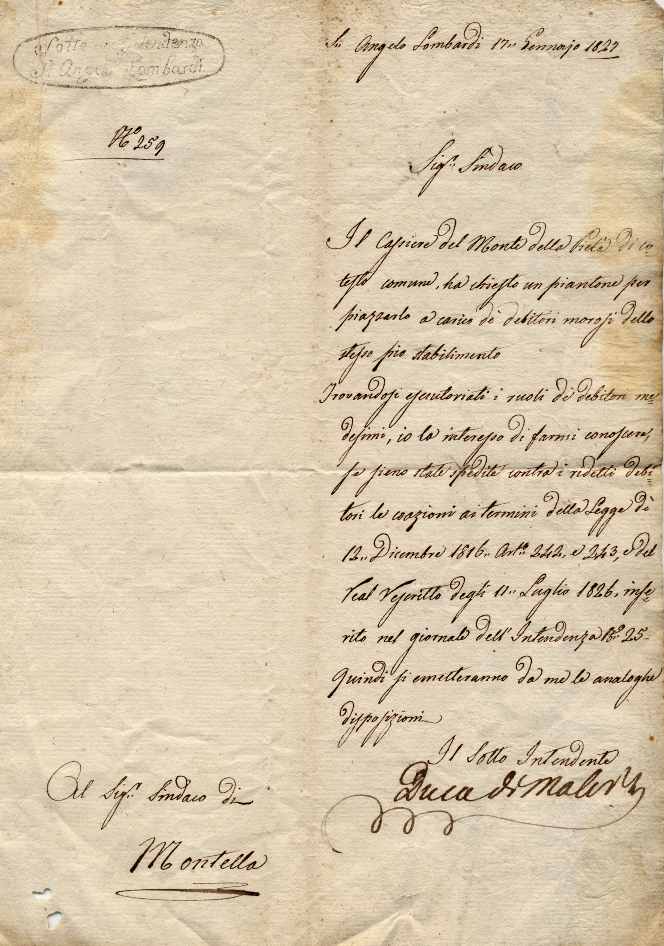 Sotto Intendenza
St Angelo Lombardi
Nº 259
St Angelo Lombardi 17.. Gennajo 1827
Sigr. Sindaco
Il Cassiere del Monte della Pietà di co-
testo comune, ha chiesto un piantone per
piazzarlo a carico dè debitori morosi dello
stesso pio stabilimento
Trovandosi esecutoriati i ruoli dè debitori me-
desimi, io la interesso di farmi conoscere,
se sieno state spedite contra i ridetti debi-
tori le coazioni ai termini della Legge dè
12.. Dicembre 1816.. Arti. 242, e 243, e del
Real Rescritto degli 11.. Luglio 1826, inse-
rito nel giornale dell'Intendenza Nº 25-
Quindi si emetteranno da me le analoghe
disposizioni
Il Sotto Intendente
Duca di
Al Sigr. Sindaco di
Montella